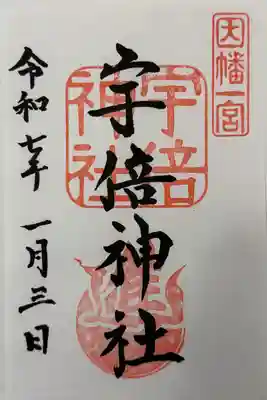 因幡一宮
宇倍神社
宇倍神社
令和七年
一月三日